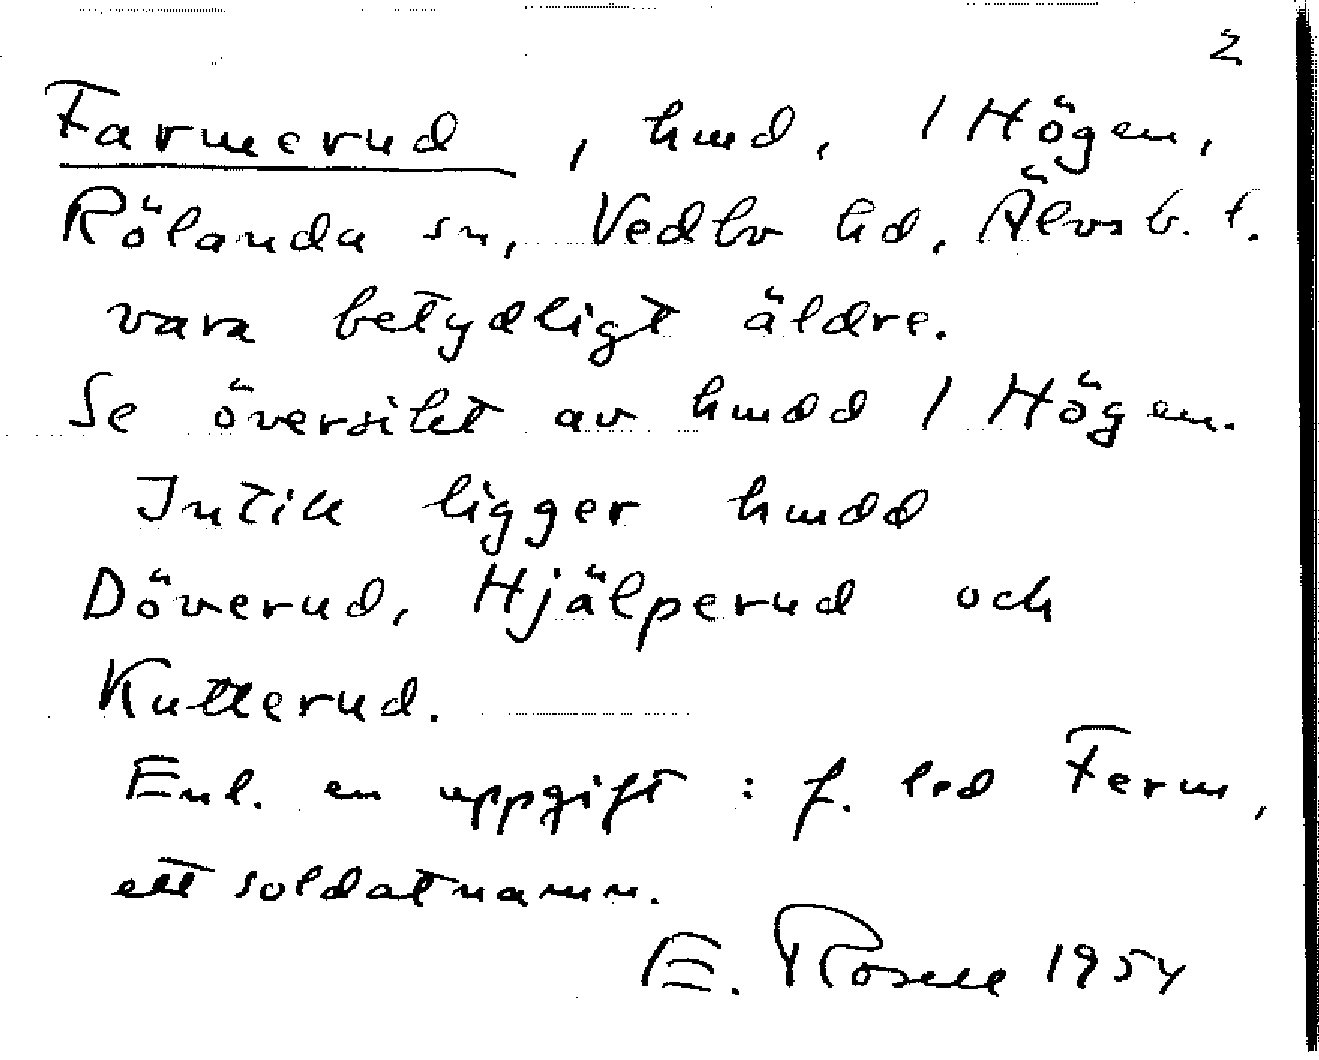 2
Farmerud, hmd, 1 Högen,
Rölanda sn, Vedbo hd, Älvsb. l.
vara betydligt äldre.
Se översikt av hmdd 1 Högen.
Intill ligger hmdd
Döverud, Hjälperud och
Kutterud.
Enl. en uppgift: f. led Ferm,
ett soldatnamn.
E. Rosell 1954